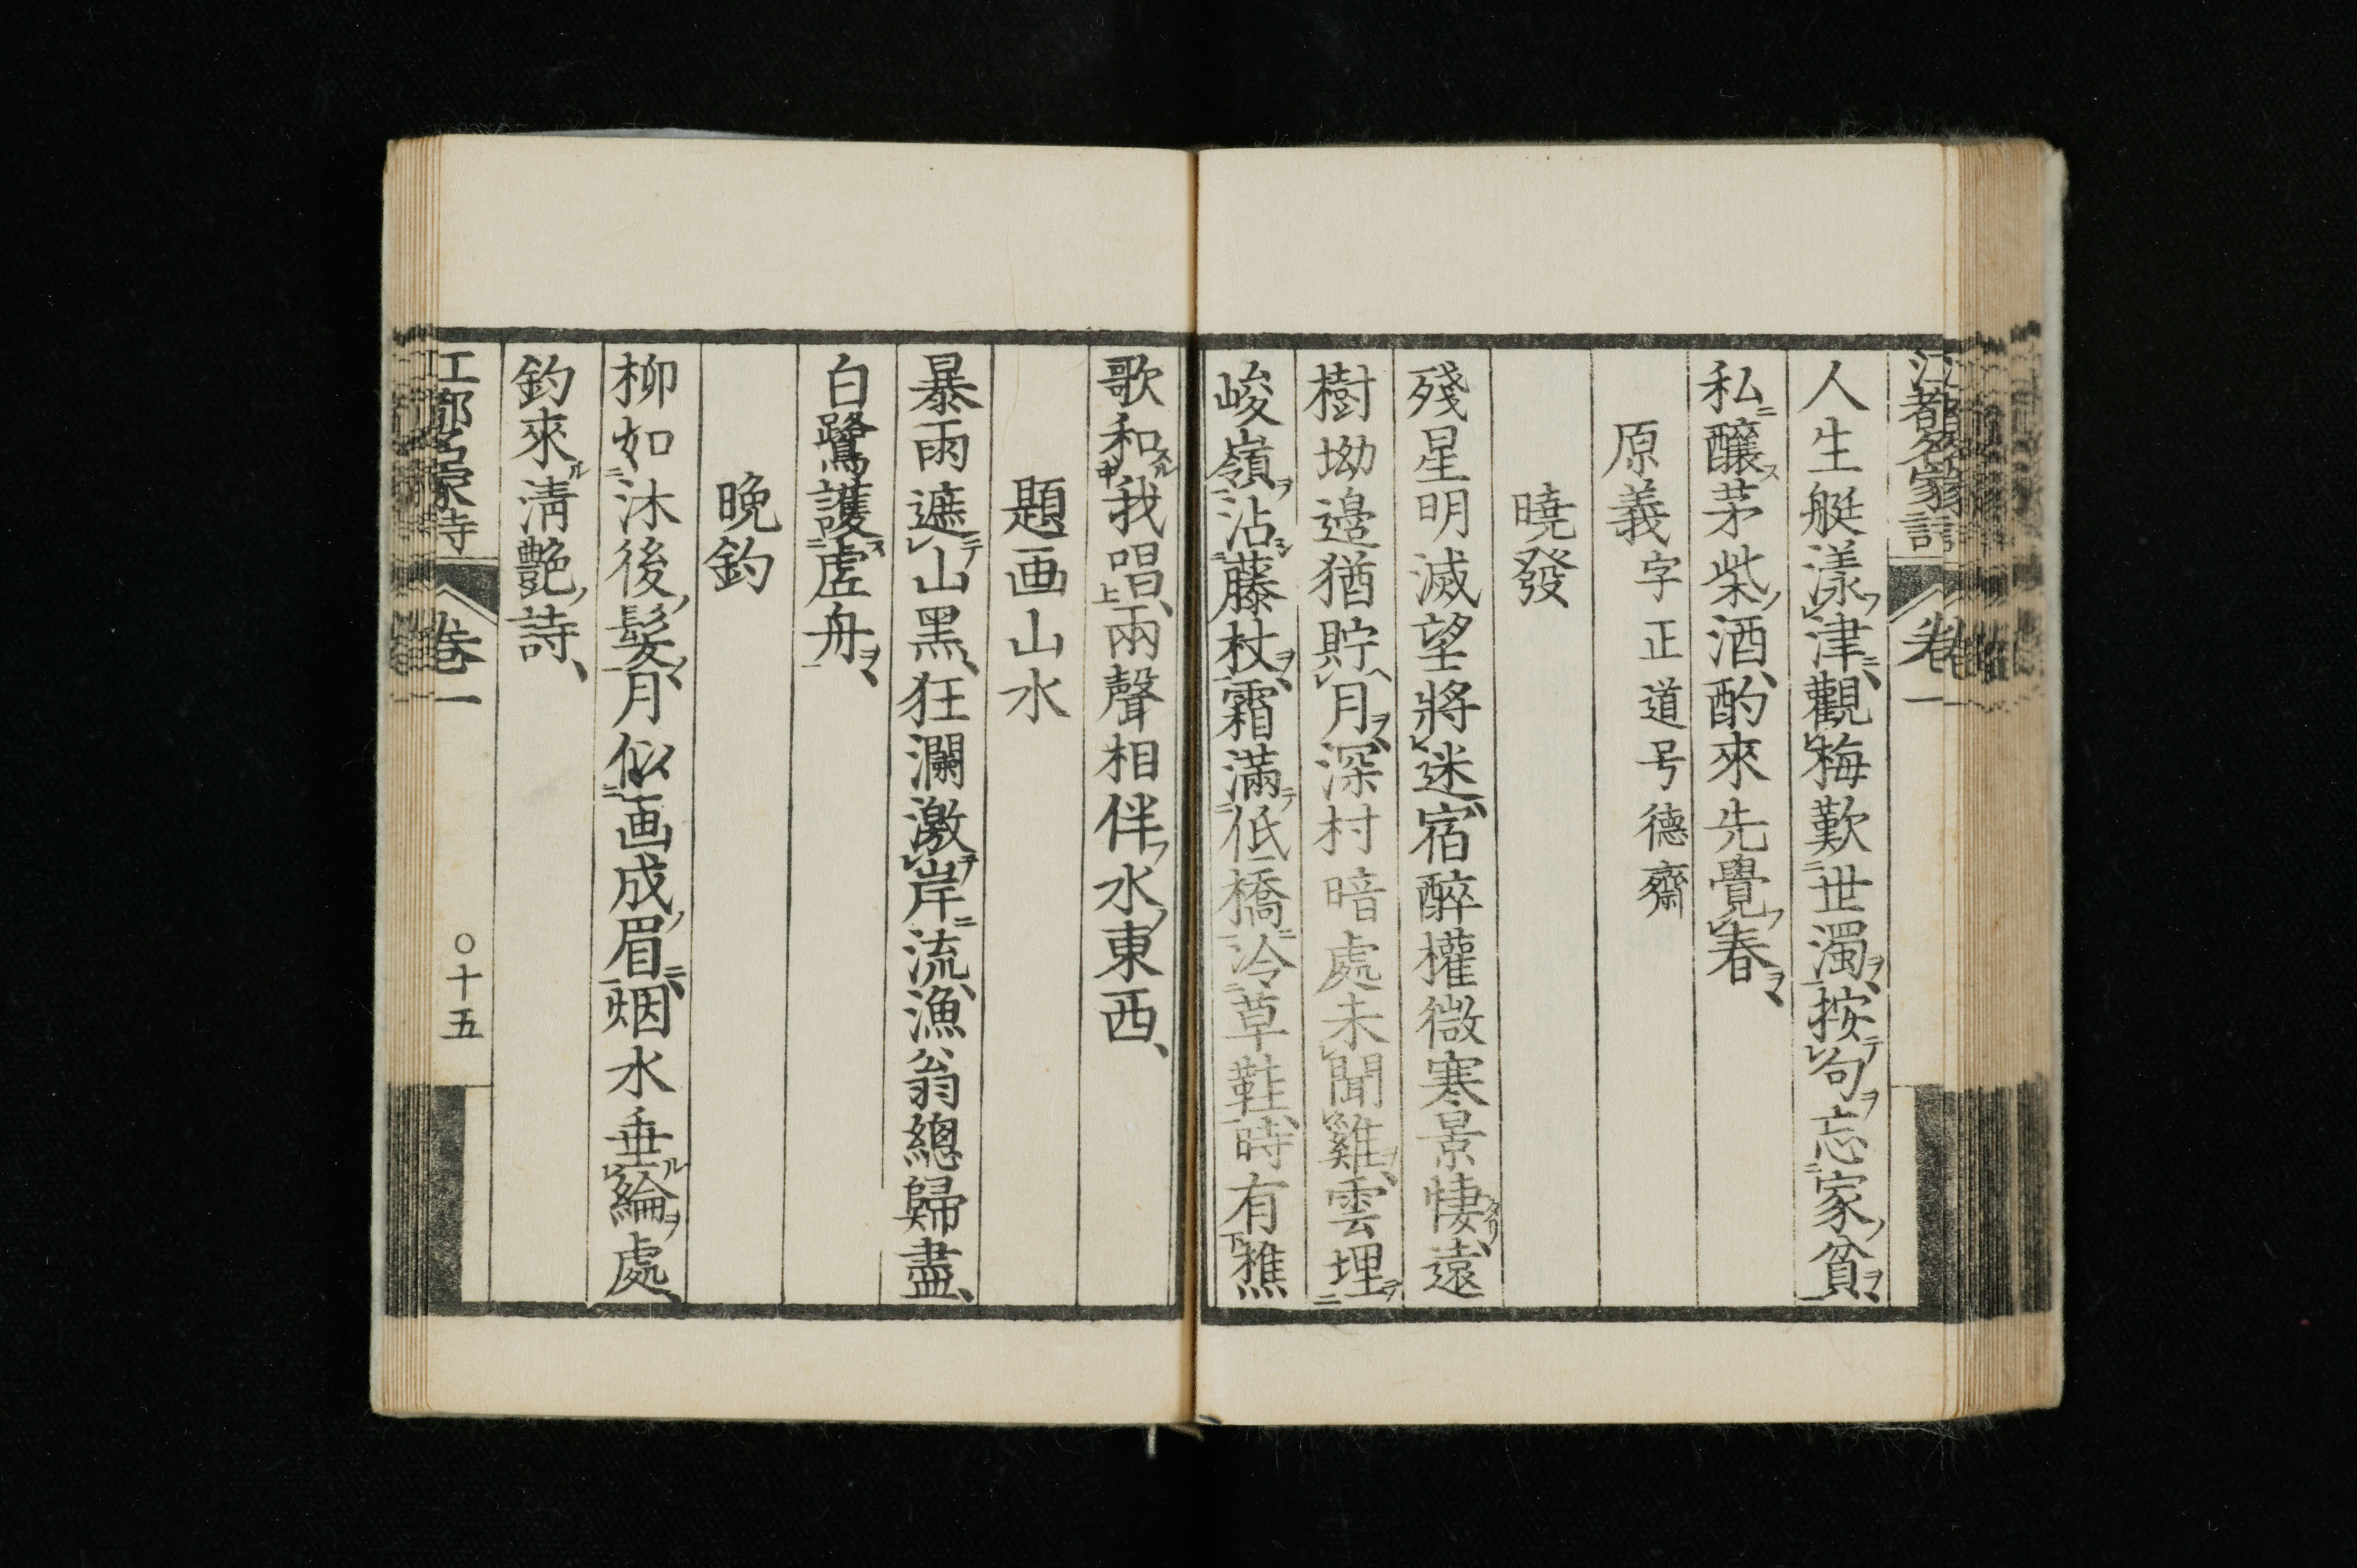 人生艇漾津觀梅歎世濁按句忘家貧
私釀茅柴酒酌來先覺春
原義字正道号德齋
曉發
殘星明滅望將迷宿醉權微寒景悽遠
樹坳邉猶貯月深村暗處未聞雞雲埋
峻嶺沾藤杖霜滿低橋冷草鞋時有樵
歌和我唱兩聲相伴水東西
題画山水
暴雨遮山黑狂瀾激岸流漁翁總歸盡
白鷺護虗舟
晩釣
柳如沐後髮月似画成眉烟水垂綸處
釣來淸艶詩
卷一
〇十五